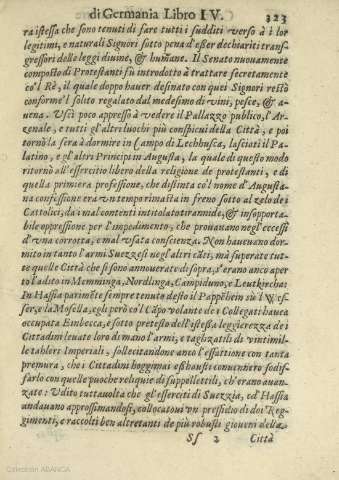 di Germania Libro IV. 323
ra istessa che sono tenuti di fare tutti i sudditi verso à i lor
legitimi, e naturali Signori sotto pena d'eßer dechiariti transf-
gressori delle leggi diuine, & humane. Il Senato nuouamente
composto di Protestanti fù introdotto à trattare secretamente
co'l Rè, il quale doppo hauer desinato con quei Signori restò
conforme'l solito regalato dal medesimo di vini, pesce, & a-
uena. Vscì poco appresso à vedere il Pallazzo publico, l'Ar-
zenale, e tutti gl'altri luochi più conspicui della Città, e poi
tornò la sera à dormire in Campo di Lechhusca, lasciati il Pa-
latino, e gl'altri Principi in Augusta, la quale di questo modo
ritornò all'essercitio libero della religione de protestanti, e di
quella primiera professione, che distinta co'l nome d'Augusta-
na confessione era vn tempo rimasta in freno sotto al zelo dei
Cattolici, da i mal contenti intitolato tirannide, & insopporta-
bile oppressione per l'impedimento, che prouauano negl'eccessi
d'vna corrotta, e mal vsata conscienza. Non haueuano dor-
mito in tanto l'armi Suezzesi negl'altri cãti, mà superate tut-
te quelle Città che si sono annouerate di sopra, s'erano anco aper-
to l'adito in Memminga, Nordlinga, Campiduno, e Leutkircha:
In Hassia parimẽte sempre tenuto desto il Pappẽhein sù l'Ves-
ser, e la Mosella, egli però co'l Cãpo volante de i Collegati haueua
occupata Embecca, e sotto pretesto dell'istessa leggierezza dei
Cittadini leuate loro di mano l'armi, e taglizatili di vinti mil-
le tahlerr Imperiali, sollecitandone anco l'essattione con tanta
premura, che i Cittadini hoggimai eßhausti conuennero sodif-
farlo con quelle puoche reliquie di suppellettili, ch'erano auan-
zate: Vdito tuttauolta che gl'esserciti di Suezzia, ed'Hassia
andauano approssimandosi, collocatoui vn pressidio di doi Reg-
gimenti, e raccolti ben altretanti de più robusti gioueni della
Sſ 2 Città
Colección ABANCA